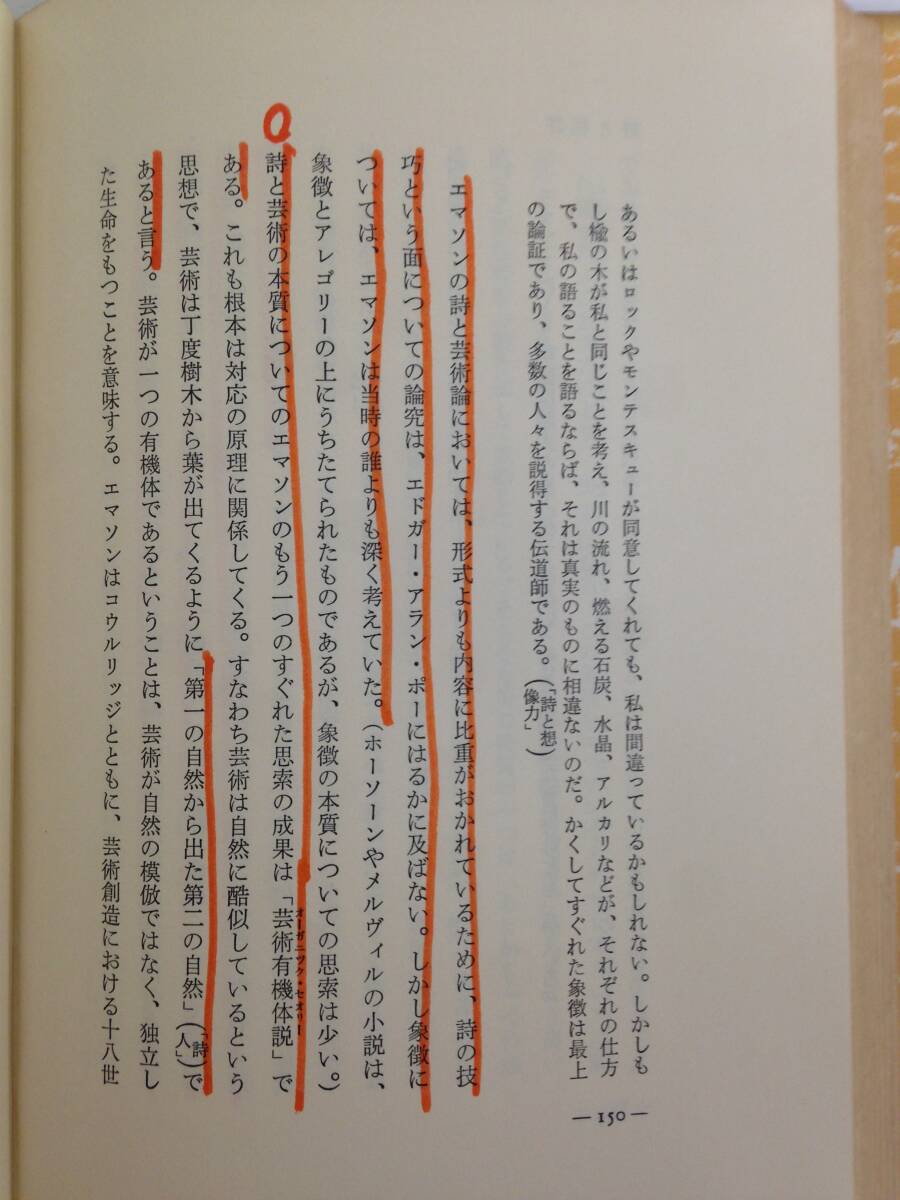 あるいはロックやモンテスキューが同意してくれても、私は間違っているかもしれない。しかしも
し楡の木が私と同じことを考え、川の流れ、燃える石炭、水晶、アルカリなどが、それぞれの仕方
で、私の語ることを語るならば、それは真実のものに相違ないのだ。かくしてすぐれた象徴は最上
の論証であり、多数の人々を説得する伝道師である。（「詩と想像力」）
エマソンの詩と芸術論においては、形式よりも内容に比重がおかれているために、詩の技
巧という面についての論究は、エドガー・アラン・ポーにはるかに及ばない。しかし象徴に
ついては、エマソンは当時の誰よりも深く考えていた。（ホーソーンやメルヴィルの小説は、
象徴とアレゴリーの上にうちたてられたものであるが、象徴の本質についての思索は少い。）
詩と芸術の本質についてのエマソンのもう一つのすぐれた思索の成果は「芸術有機体説」で
オーガニック・セオリー
ある。これも根本は対応の原理に関係してくる。すなわち芸術は自然に酷似しているという
思想で、芸術は丁度樹木から葉が出てくるように「第一の自然から出た第二の自然」（「詩人」）で
あると言う。芸術が一つの有機体であるということは、芸術が自然の模倣ではなく、独立し
た生命をもつことを意味する。エマソンはコウルリッジとともに、芸術創造における十八世
—150—